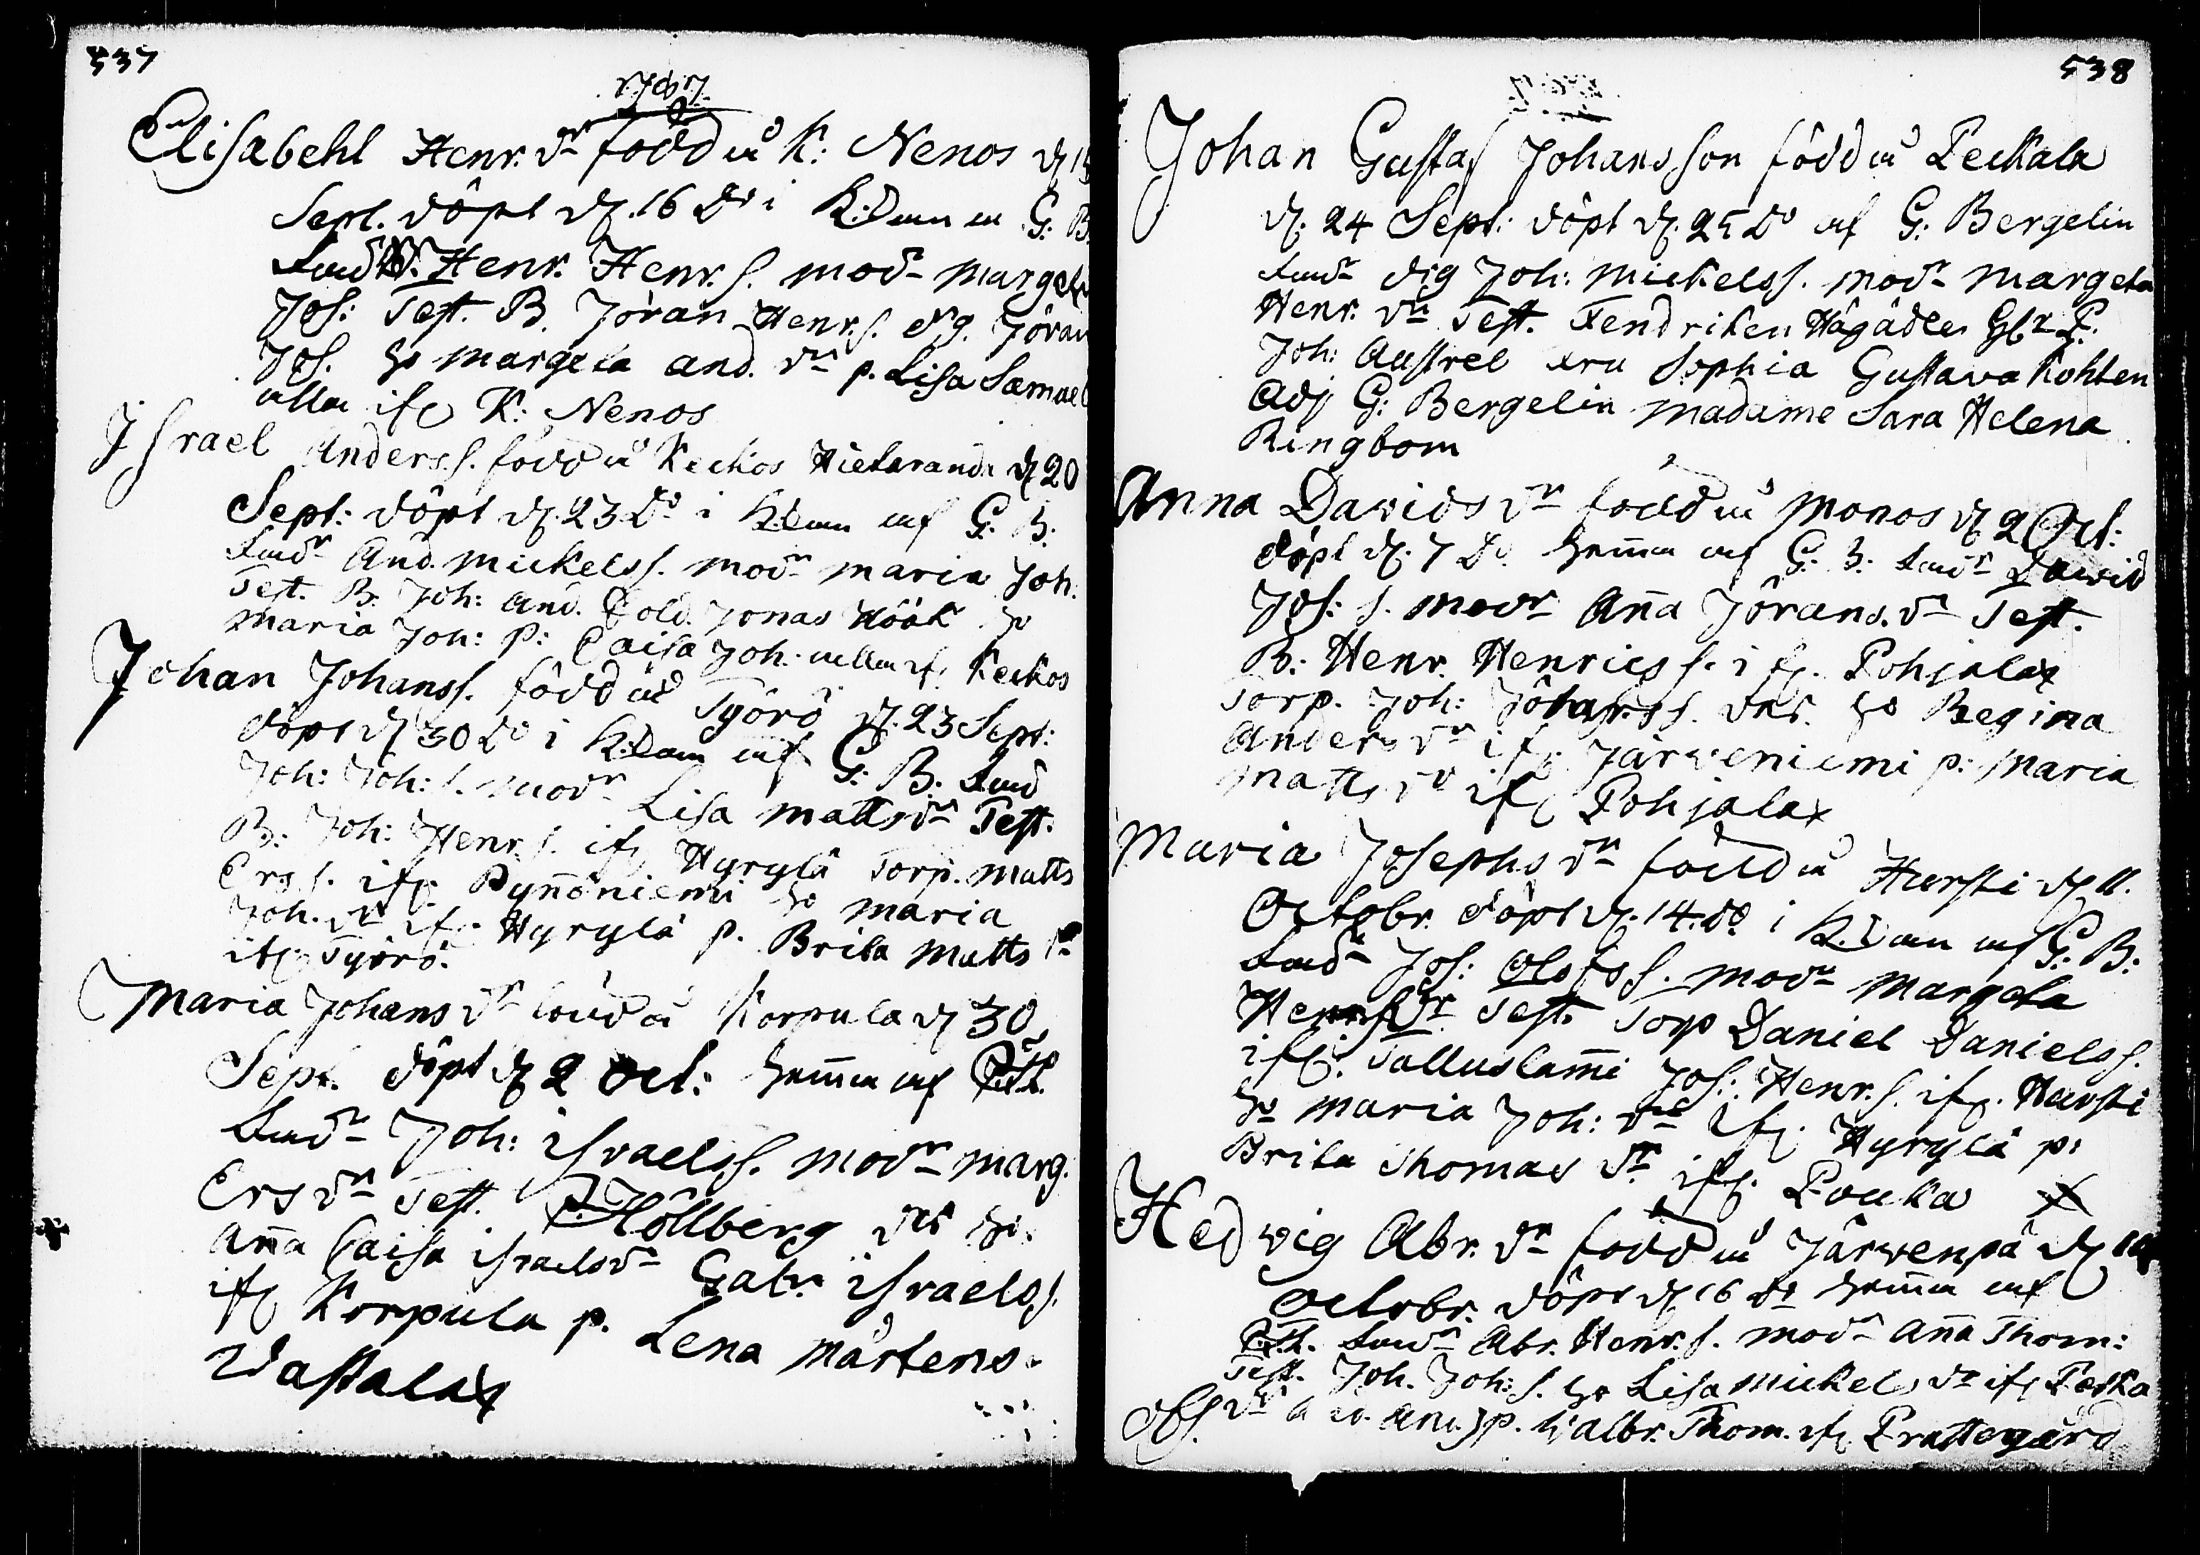 537
1787
Elisabeht Henr. dr född i K: Nenos d 15
Sept. döpt d. 16 Do i K:dom G: B.
Henr. Henr. s. modr Margeta
Jos: Test. B. Jöran Henr. s. dg. Jöran
Jos. ho Margeta And. dr p. Lisa Samuel
alla if K: Nenos
Israel Anders s. född i Keckos Hietaranda d 20
Sept: döpt d. 23 Do i K:dom af G: B.
fadr And. Mickels s. modr Maria Joh.
Test. B. Joh: And. Sold. Jonas Höök ho
Maria Joh: p: Caisa Joh. alla if. Keckos
Johan Johans s. född i Työrö d. 23 Sept:
döpt d 30 Do i K:dom af G: B. fad
Joh: Joh: s. modr Lisa Matts dr Test.
B: Joh: Henr. s. if Hyrylä Torp. Matts
Ers s. if. Pyñöniemi ho Maria
Joh. dr if. Hyrylä p. Brita Matts dr
if Työrö.
Maria Johans dr född i Korpula d 30
Sept. döpt d 2 Oct: hema af
fadr Joh: Israels s. modr Marg.
Ers dr Test. Höllberg ho.
Aña Caisa Israels dr Gabr. Israels s.
if Korpula p. Lena Mårtens
Wastala
538
Johan Gustaf Johansson född i Peckala
d. 24 Sept: döpt d. 25 Do af G: Bergelin
fadr dg Joh: Mickels s. modr Margeta
Henr. dr Test. Fendriken Hägädle
Joh: Austrel Fru Sophia Gustava Kohten
Adj G: Bergelin Madame Sara Helena
Ringbom
Anna Davids dr född i Monos d 2 Oct:
döpt d. 7 Do hema af G: B: fadr David
Jos: s. modr Aña Jörans. dr Test.
B: Henr. Henrics s. if. Pohjala
Torp. Joh: ho Regina
Anders dr if. Järveniemi p: Maria
Matts dr if Pohjala
Maria Josephs dr född i Hursti d 11.
Octobr. döpt d. 14. do i K:dom af G: B:
fadr Jos: Olofs s. modr Margeta
Henr. dr Test. Torp Daniel Daniels s.
if. Talluslami Jos: Henr. s. if. Hursti
ho Maria Joh: dr if. Hyrylä p:
Brita Thomas dr if. Pouka
Hedvig Abr. dr född i Järvenpä d 14
Octobr. döpt d 16 do hema af
fadr Abr. Henr. s. modr Aña Thom:
Test. Joh. Joh: s. ho Lisa Mickels dr if Paska
p. Walbr. Thom. if. Prattegård